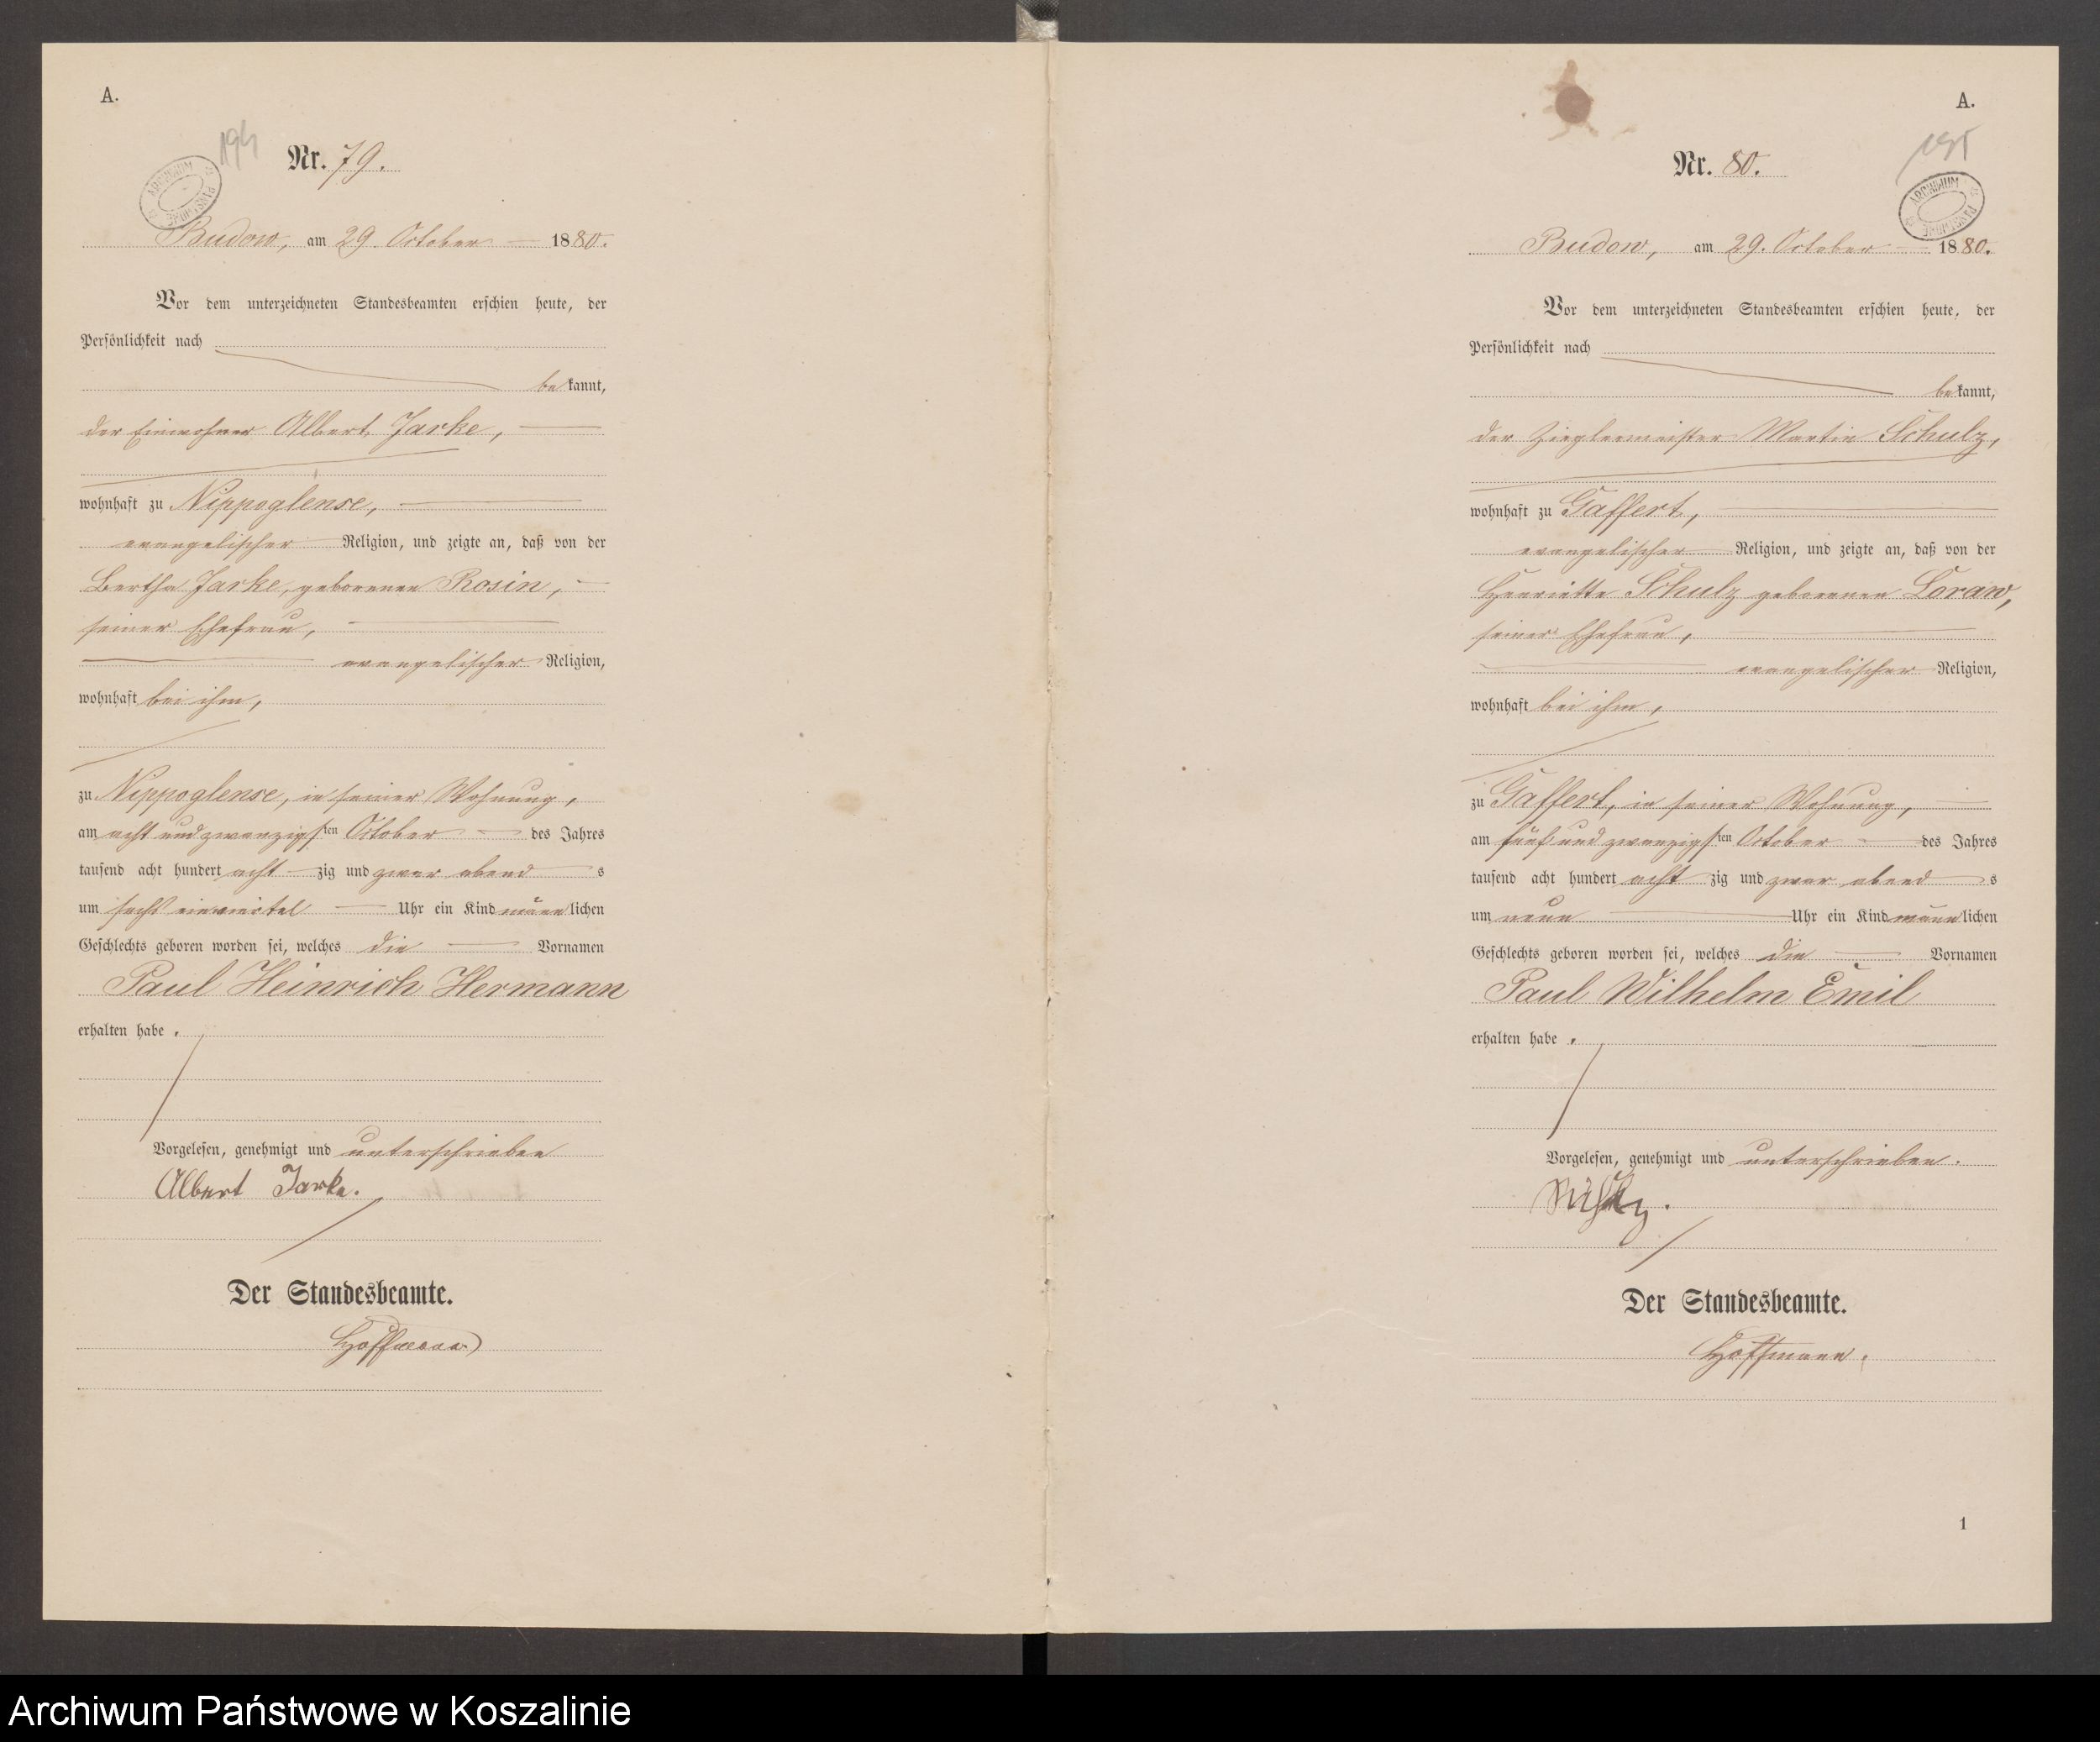 A.
194
Nr. 79.
ARCHIWUM PAŃSTWOWE
Budow, am 29. October 1880.
Vor dem unterzeichneten Standesbeamten erschien heute, der
Persönlichkeit nach
bekannt,
der Einwohner Albert Jarke,
wohnhaft zu Nippoglense,
evangelischer Religion, und zeigte an, daß von der
Bertha Jarke, geborenen Rosin,
seiner Ehefrau,
evangelischer Religion,
wohnhaft bei ihm,
zu Nippoglense, in seiner Wohnung,
am acht und zwanzigsten October des Jahres
tausend acht hundert achtzig und zwar abends
um sechs einviertel Uhr ein Kind männlichen
Geschlechts geboren worden sei, welches die Vornamen
Paul Heinrich Hermann
erhalten habe.
Vorgelesen, genehmigt und unterschrieben
Albert Jarke.
Der Standesbeamte.
Hoffmann
A.
195
Nr. 80.
ARCHIWUM PAŃSTWOWE
Budow, am 29. October 1880.
Vor dem unterzeichneten Standesbeamten erschien heute, der
Persönlichkeit nach
bekannt,
der Zieglermeister Martin Schulz,
wohnhaft zu Gaffert,
evangelischer Religion, und zeigte an, daß von der
Henriette Schulz geborenen Goraw,
seiner Ehefrau,
evangelischer Religion,
wohnhaft bei ihm,
zu Gaffert, in seiner Wohnung,
am fünf und zwanzigsten October des Jahres
tausend acht hundert achtzig und zwar abends
um neun Uhr ein Kind männlichen
Geschlechts geboren worden sei, welches die Vornamen
Paul Wilhelm Emil
erhalten habe.
Vorgelesen, genehmigt und unterschrieben.
Der Standesbeamte.
Hoffmann.
1
Archiwum Państwowe w Koszalinie